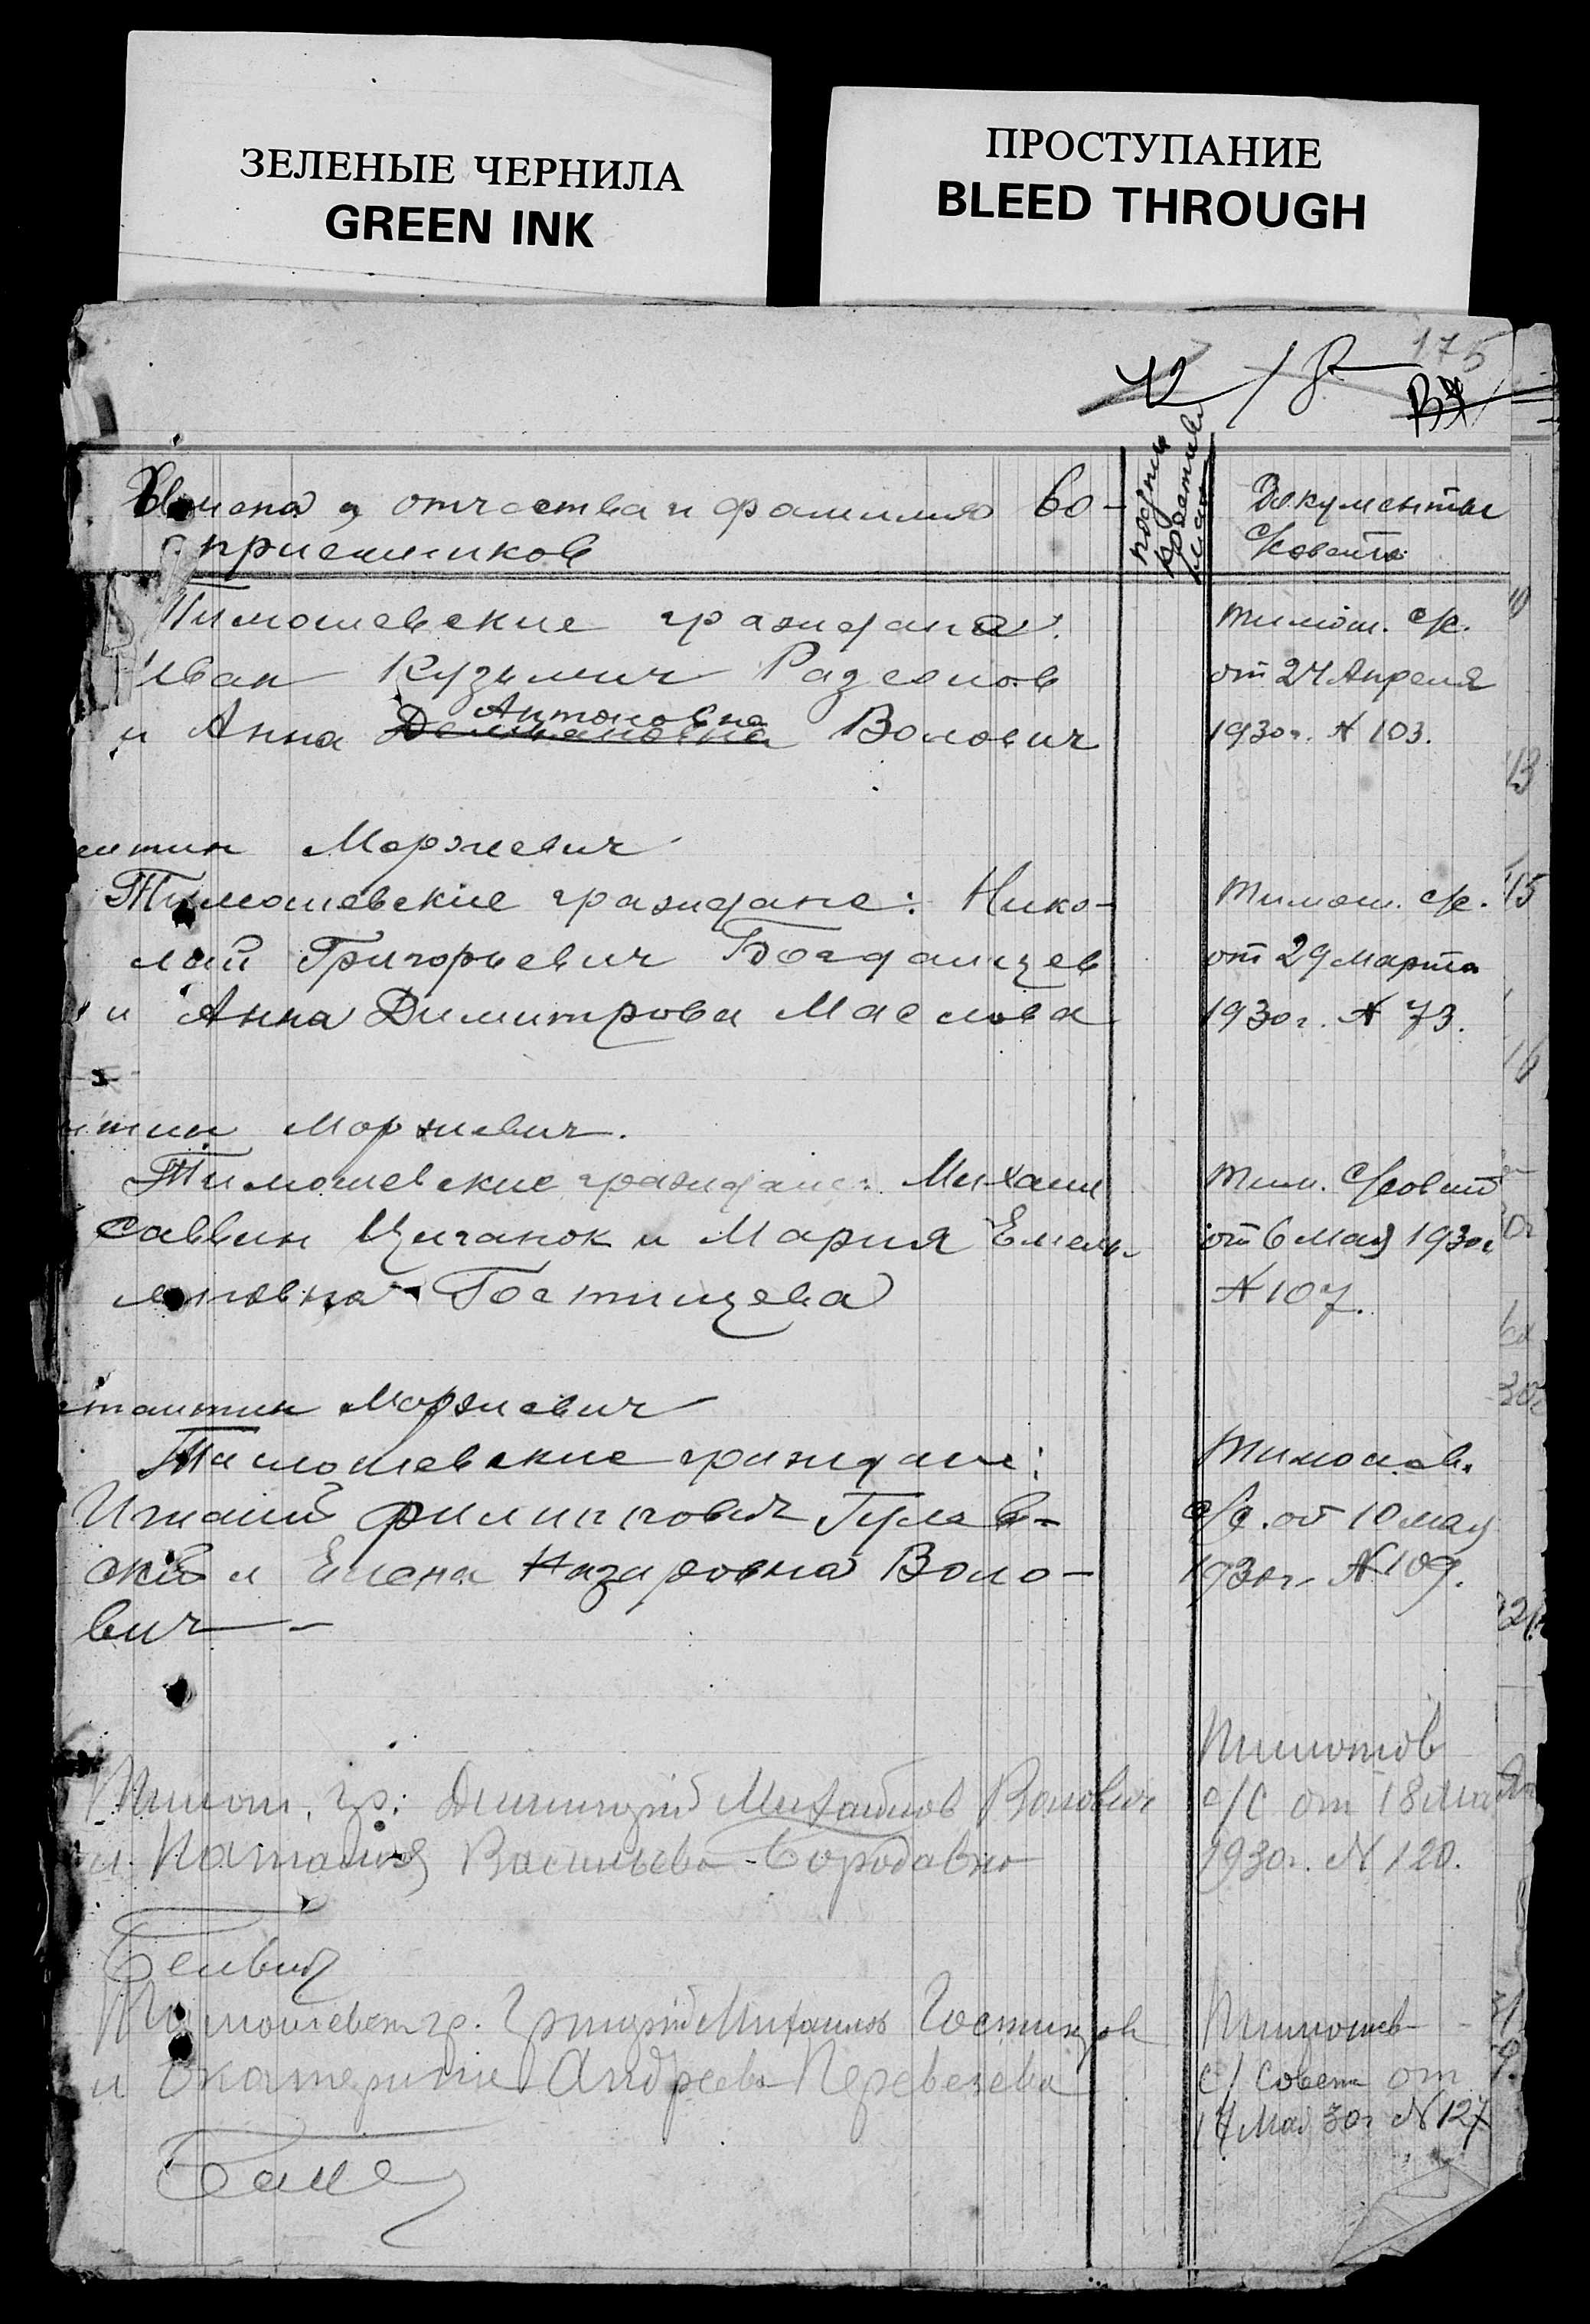 ЗЕЛЕНЫЕ ЧЕРНИЛА
GREEN INK
ПРОСТУПАНИЕ
BLEED THROUGH
175
Имена, отчества и фамилия во-
сприемников
Документы
с/совета
Тимошевские граждане:
Иван Кузьмич Разсолов
и Анна Антоновна Волович
Тимош. с/с.
от 24 Апреля
1930г. № 103.
Моржевич
Тимошевские граждане: Нико-
лай Григорьевич Богданцев
и Анна Димитрова Маслова
Тимош. с/с.
от 29 Марта
1930г. № 73.
Моржевич.
Тимошевские граждане: Михаил
Саввин Цыганок и Мария Емель-
яновна Гостищева
Тим. С/совет
от 6 Мая 1930г
№ 107.
Моржевич
Тимошевские граждане:
Игнатий Филиппович
и Елена Назаровна Воло-
вич
Тимошев.
с/с. от 10 мая
1930г. № 109.
Тимош. гр: Димитрий Михайлов Волович
и Наталия Васильева Бородавко
Тимошов
с/с от 18 Мая
1930г. № 120.
гр. Григорий Михаилов Гостищев
и Екатерина Андреева
Тимошев
с/совета от
17 Мая 30г № 127